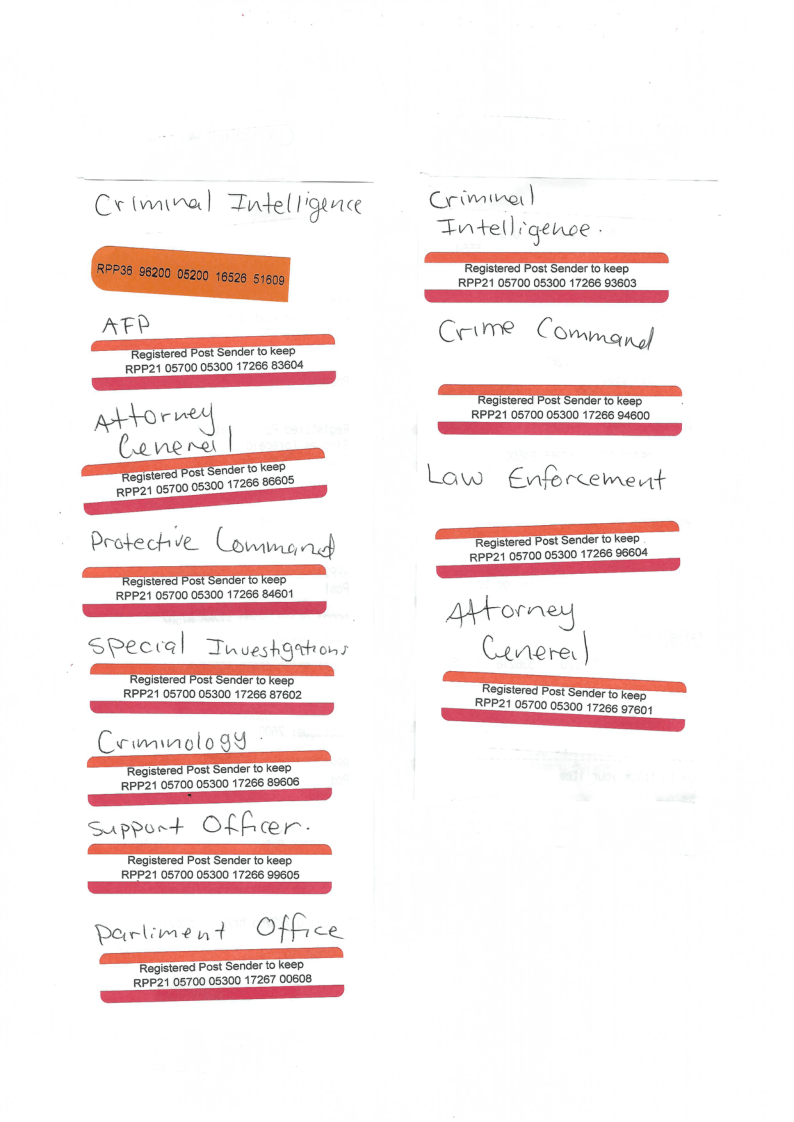 Criminal Intelligence
RPP36 96200 05200 16526 51609
AFP
Registered Post Sender to keep
RPP21 05700 05300 17266 83604
Attorney
General
Registered Post Sender to keep
RPP21 05700 05300 17266 86605
Protective Command
Registered Post Sender to keep
RPP21 05700 05300 17266 84601
Special Investigations
Registered Post Sender to keep
RPP21 05700 05300 17266 87602
Criminology.
Registered Post Sender to keep
RPP21 05700 05300 17266 89606
Support Officer.
Registered Post Sender to keep
RPP21 05700 05300 17266 99605
Parliment Office
Registered Post Sender to keep
RPP21 05700 05300 17267 00608
Criminal
Intelligence.
Registered Post Sender to keep
RPP21 05700 05300 17266 93603
Crime Command
Registered Post Sender to keep
RPP21 05700 05300 17266 94600
Law Enforcement
Registered Post Sender to keep
RPP21 05700 05300 17266 96604
Attorney
General
Registered Post Sender to keep
RPP21 05700 05300 17266 97601